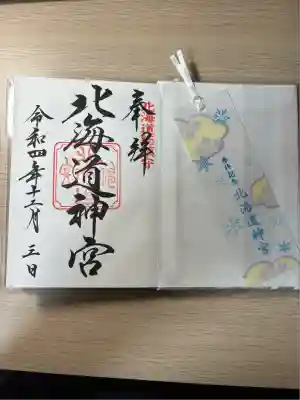 奉拝
北海道神宮
令和四年十二月三日
参拝記念
北海道神宮